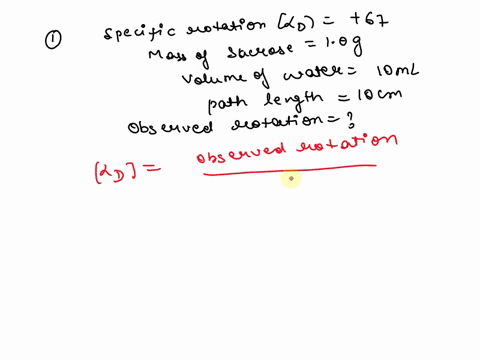 ① Specific rotation [αD] = +67
Mass of sucrose = 1.0g
Volume of water = 10mL
path length = 10cm
Observed rotation = ?
[αD] = observed rotation